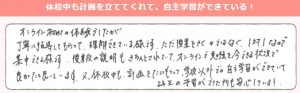 休校中も計画を立ててくれて、自主学習ができている！
オンライン初回の体験でしたが
丁寧に指導してもらって、理解できている様です。ただ授業をきくのではなく、1対1なので
集中できる様です。授業前の説明もきちんとされていて、オンラインで勉強する今の状況で
良かったと思います。又、休校中も、計画をたててもらって学校以外での自主学習ができていて
学習ができた時も安心しています！